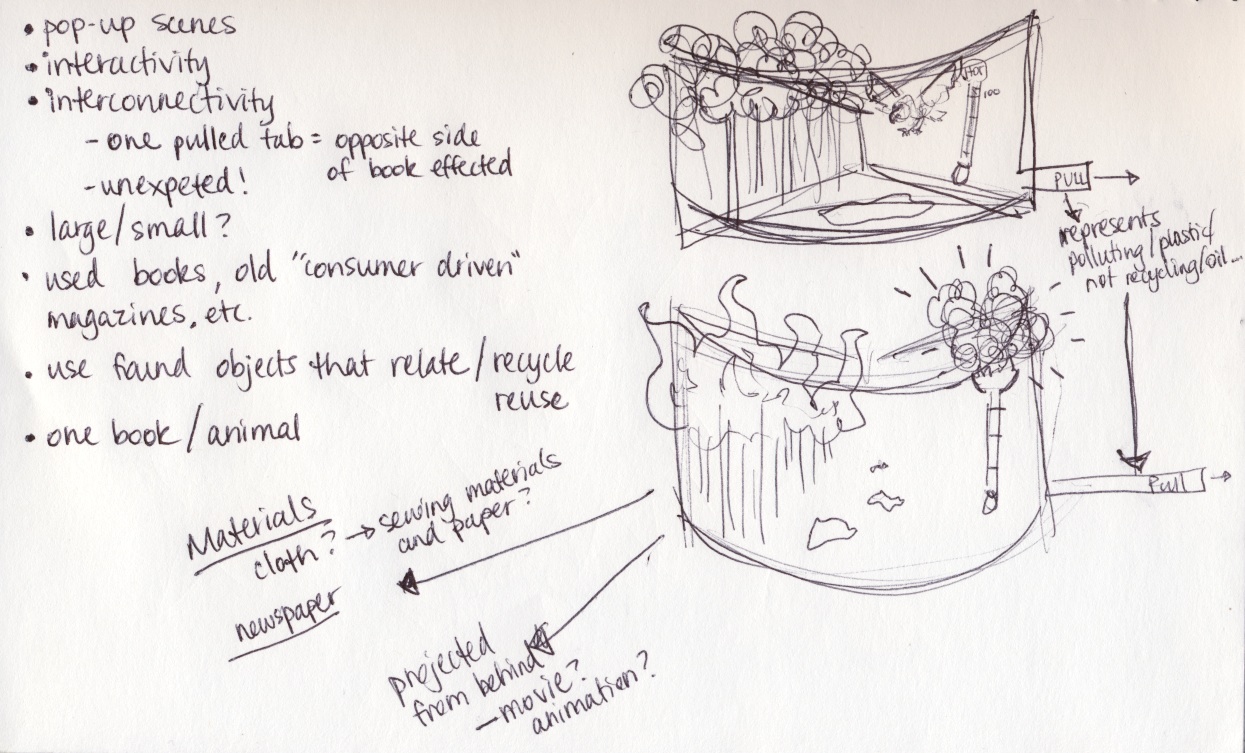 • pop-up scenes
• interactivity
• interconnectivity
- one pulled tab = opposite side
of book effected
- unexpeted!
• large/small?
• used books, old "consumer driven"
magazines, etc.
• use found objects that relate/recycle
reuse
• one book/animal
Materials
cloth? → sewing materials
and paper?
newspaper
projected
from behind
- movie?
animation?
HOT
100
PULL
represents
polluting/plastic/
not recycling/oil...
Pull